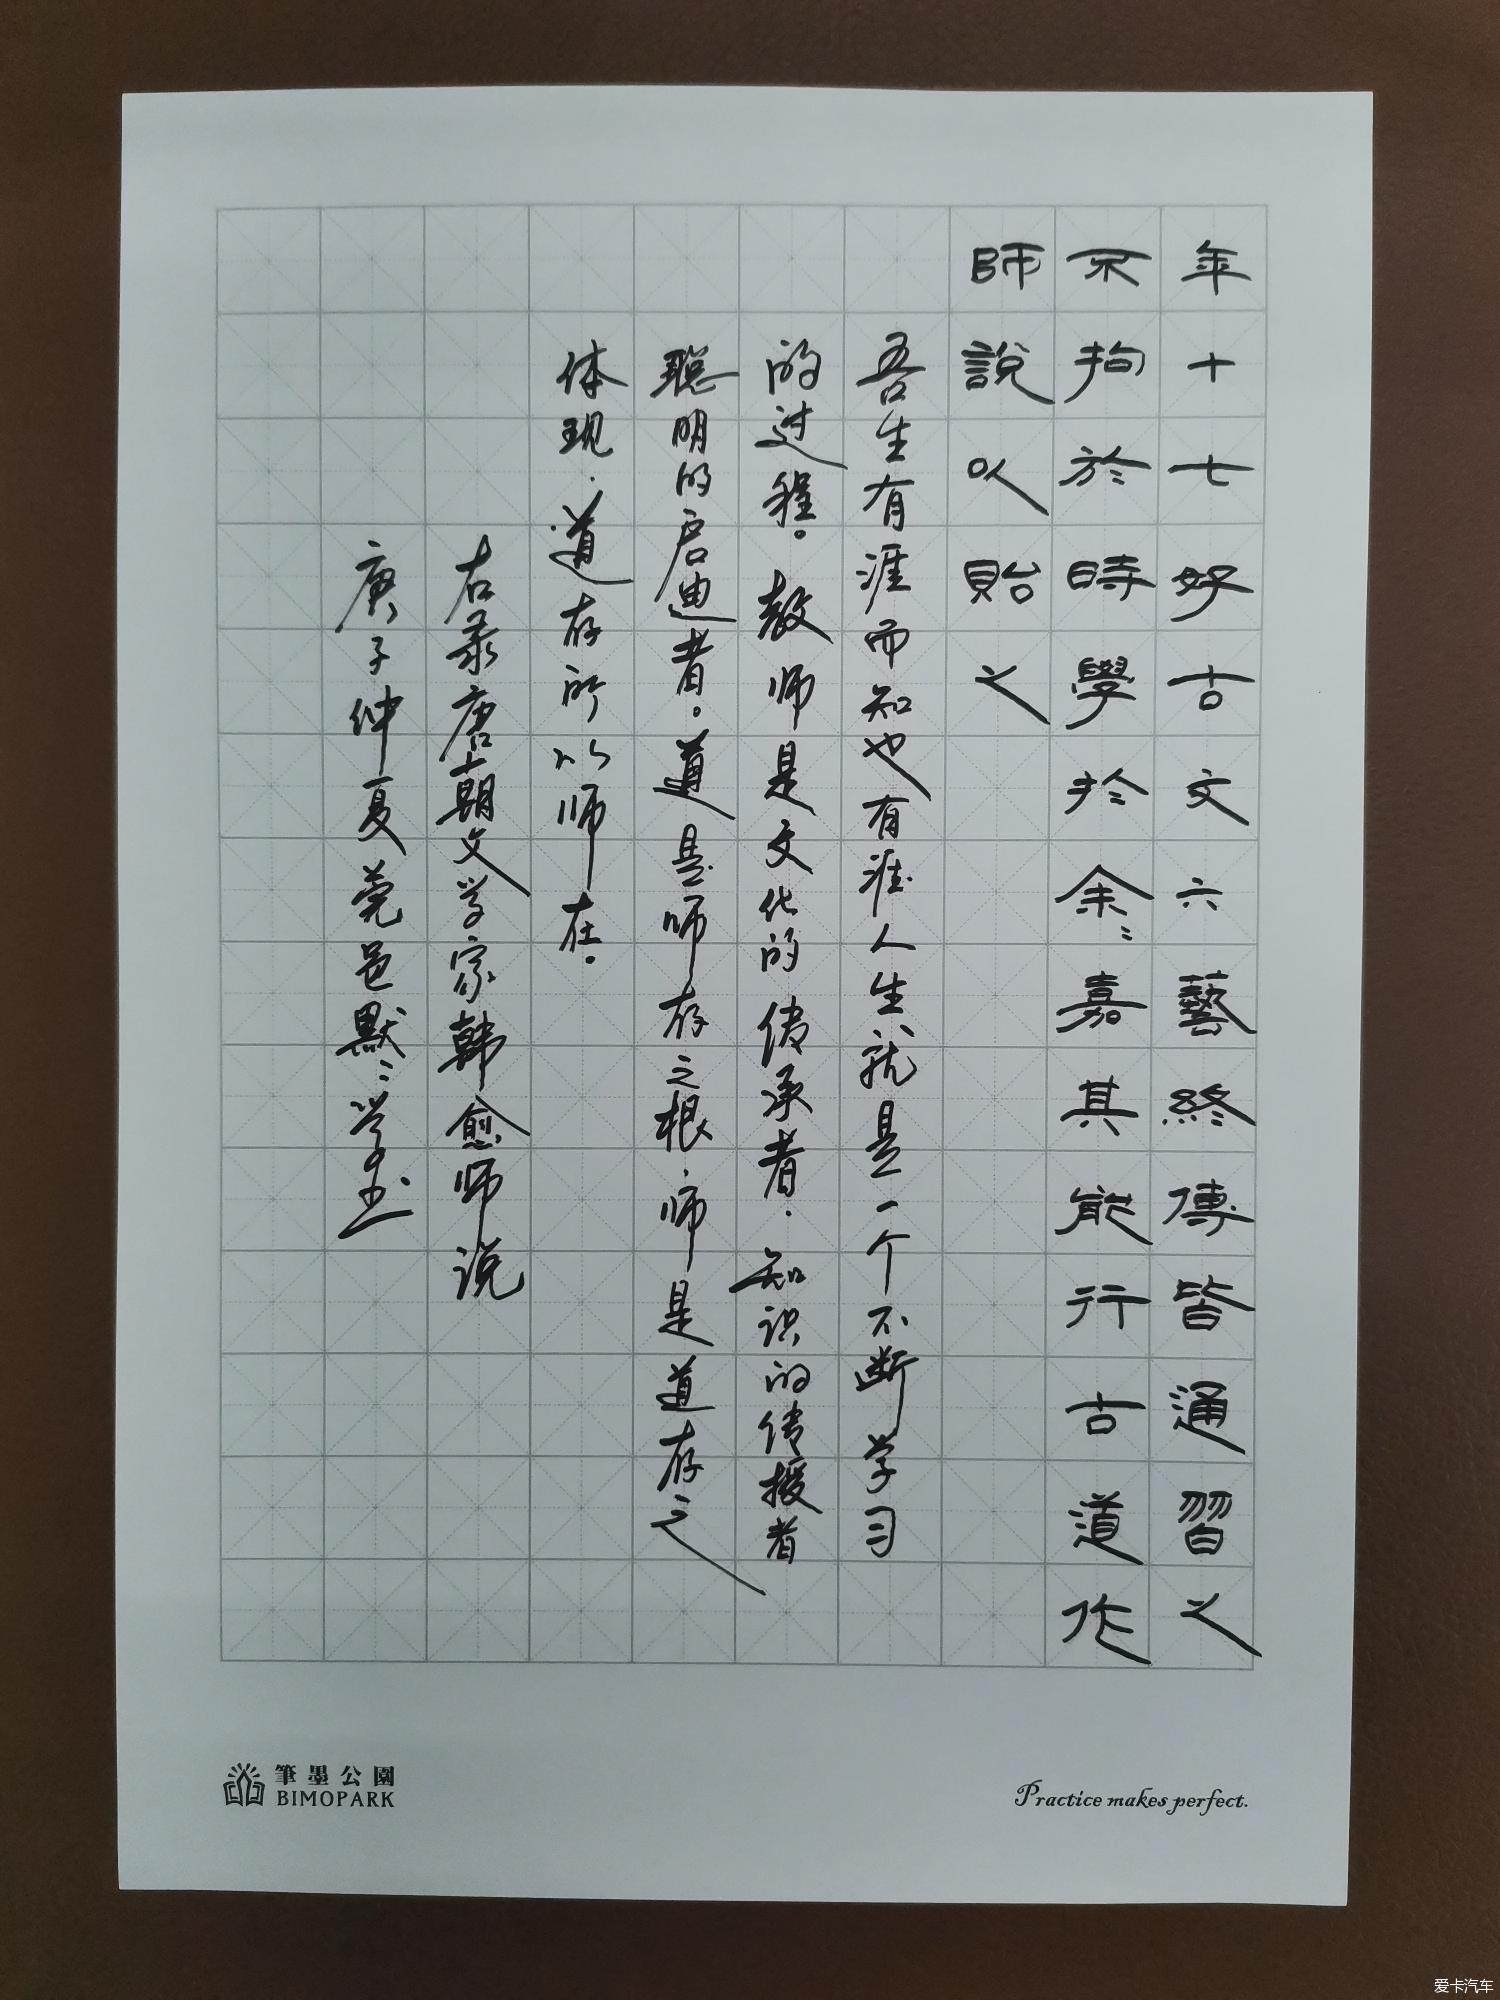 年十七好古文六藝終傳皆通習之
不拘於時學於余:嘉其能行古道作
師說以貽之
吾生有涯而知也有涯人生就是一个不断学习
的过程。教师是文化的传承者.知识的传授者
聪明的启迪者。道是师存之根.师是道存之
体现.道存所以师在。
右录唐朝文学家韩愈师说
庚子仲夏莞邑默:学书
筆墨公園
BIMOPARK
Practice makes perfect.
爱卡汽车